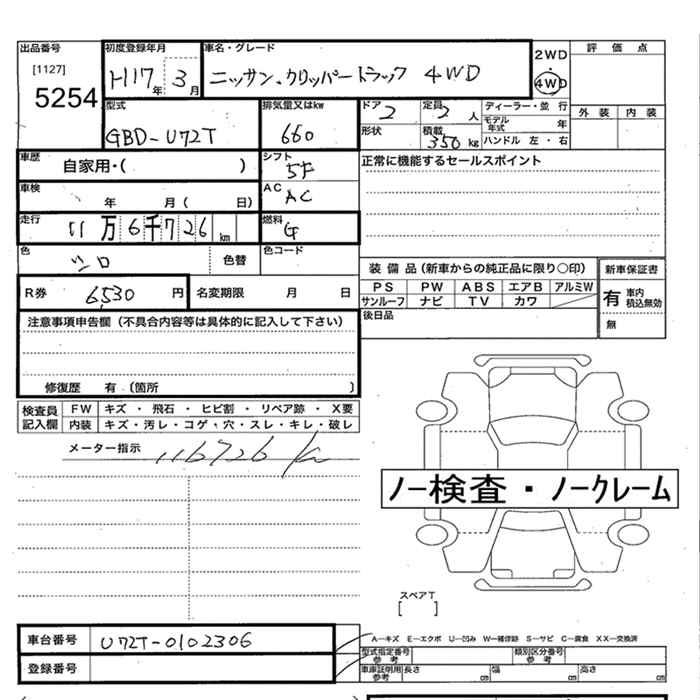 出品番号 初度登録年月 車名・グレード 2WD・4WD 評価点
[1127]
5254 H17年3月 ニッサン・クリッパートラック 4WD
型式 排気量又はkw ドア 定員 ディーラー・並行 外装 内装
GBD-U72T 660 2 2人 モデル年式 年
形状 積載 350kg ハンドル 左・右
車歴 自家用・( ) シフト 5F 正常に機能するセールスポイント
車検 年 月( 日) AC AC
走行 11万6千726km 燃料 G
色 シロ 色替 色コード
装備品(新車からの純正品に限り○印) 新車保証書
PS PW ABS エアB アルミW 有 車内積込無効
サンルーフ ナビ TV カワ
R券 6,530円 名変期限 月 日
後日品 無
注意事項申告欄(不具合内容等は具体的に記入して下さい)
修復歴 有(箇所 )
検査員記入欄 FW キズ・飛石・ヒビ割・リペア跡・X要
内装 キズ・汚レ・コゲ・穴・スレ・キレ・破レ
メーター指示 116726km
ノー検査・ノークレーム
スペアT
[ ]
A―キズ E―エクボ U―凹み W―補修跡 S―サビ C―腐食 XX―交換済
車台番号 U72T-0102306
型式指定番号 参考 類別区分番号 参考
登録番号 車庫証明用参考 長さ cm 幅 cm 高さ cm